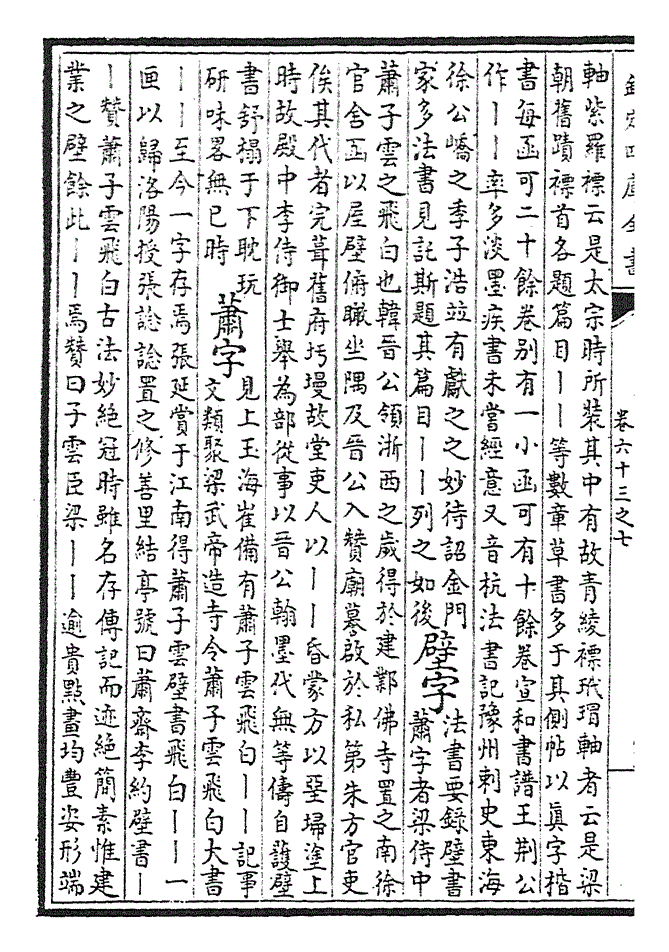 欽定四庫全書
卷六十三之七
軸紫羅褾云是太宗時所裝其中有故青綾褾玳瑁軸者云是梁
朝舊蹟褾首各題篇目丨丨等數章草書多于其側帖以真字楷
書每函可二十餘卷别有一小函可有十餘卷宣和書譜王荆公
作丨丨率多淡墨疾書未嘗經意又音杭法書記豫州刺史東海
徐公嶠之季子浩竝有獻之之妙待詔金門
家多法書見託斯題其篇目丨丨列之如後
壁字
法書要錄壁書
蕭字者梁侍中
蕭子雲之飛白也韓晉公領浙西之歲得於建鄴佛寺置之南徐
官舍函以屋壁俯瞰坐隅及晉公入贊廟謩啟於私第朱方官吏
俟其代者完葺舊府圬墁故堂吏人以丨丨昏蒙方以堊埽塗上
時故殿中李侍御士舉為部從事以晉公翰墨代無等儔自䕶壁
書舒榻于下耽玩
研味畧無已時
蕭字
見上玉海崔備有蕭子雲飛白丨丨記事
文類聚梁武帝造寺令蕭子雲飛白大書
丨丨至今一字存焉張延賞于江南得蕭子雲壁書飛白丨丨一
匣以歸洛陽授張諗諗置之修善里結亭號曰蕭齋李約壁書丨
丨贊蕭子雲飛白古法妙絶冠時雖名存傳記而迹絶簡素惟建
業之壁餘此丨丨焉贊曰子雲臣梁丨丨逾貴點畫均豐姿形端